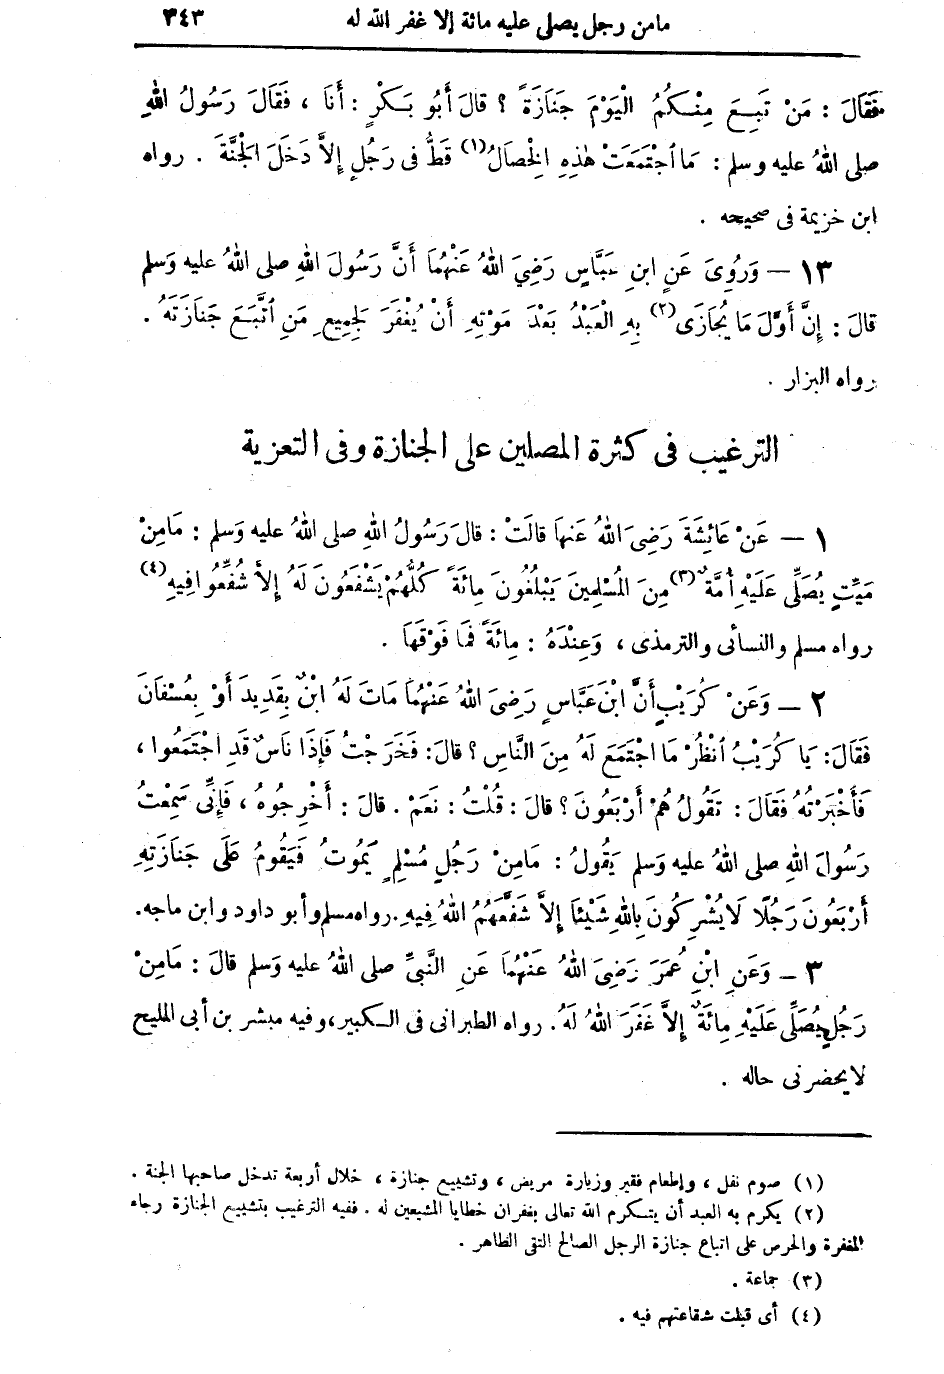 مامن رجل يصلى عليه مائة إلا غفر الله له ٣٤٣
فَقَالَ : مَنْ تَبِعَ مِنْكُمُ الْيَوْمَ جَنَازَةً ؟ قالَ أَبُو بَكْرٍ : أَنَا ، فَقَالَ رَسُولُ اللهِ
صلى اللهُ عليه وسلم : مَا اجْتَمَعَتْ هٰذِهِ الْخِصَالُ(١) قَطُّ فى رَجُلٍ إِلاَّ دَخَلَ الْجَنَّةَ . رواه
ابن خزيمة فى صحيحه .
١٣ — وَرُوِىَ عَنِ ابنِ عَبَّاسٍ رَضِيَ اللهُ عَنْهُمَا أَنَّ رَسُولَ اللهِ صلى اللهُ عليه وَسلم
قالَ : إِنَّ أَوَّلَ مَا يُجَازَى(٢) بِهِ الْعَبْدُ بَعْدَ مَوْتِهِ أَنْ يُغْفَرَ لِجَمِيعِ مَنِ اتَّبَعَ جَنَازَتَهُ .
رواه البزار .
الترغيب فى كثرة المصلين على الجنازة وفى التعزية
١ — عَنْ عَائِشَةَ رَضِىَ اللهُ عَنهاَ قالَتْ : قالَ رَسُولُ اللهِ صلى اللهُ عليه وَسلم : مَامِنْ
مَيِّتٍ يُصَلِّى عَلَيْهِ أُمَّةٌ(٣) مِنَ الْمُسْلِمِينَ يَبْلُغُونَ مِائَةً كُلُّهُمْ يَشْفَعُونَ لَهُ إِلاَّ شُفِّعُوا فِيهِ(٤)
رواه مسلم والنسائى والترمذى ، وَعِنْدَهُ : مِائَةً فَمَا فَوْقَهاَ .
٢ — وَعَنْ كُرَيْبٍ أَنَّ ابْنَ عَبَّاسٍ رَضِىَ اللهُ عَنْهُمَا مَاتَ لَهُ ابْنٌ بِقَدِيدَ أَوْ بِعُسْفَانَ
فَقَالَ : يَا كُرَيْبُ انْظُرْ مَا اجْتَمَعَ لَهُ مِنَ النَّاسِ ؟ قالَ : فَخَرَجْتُ فَإِذَا نَاسٌ قَدِ اجْتَمَعُوا ،
فَأَخْبَرْتُهُ فَقَالَ : تَقُولُ هُمْ أَرْبَعُونَ ؟ قالَ : قُلْتُ : نَعَمْ . قالَ : أَخْرِجُوهُ ، فَإِنِّى سَمِعْتُ
رَسُولَ اللهِ صلى اللهُ عليه وَسلم يَقُولُ : مَامِنْ رَجُلٍ مُسْلِمٍ يَمُوتُ فَيَقُومُ عَلَى جَنَازَتِهِ
أَرْبَعُونَ رَجُلًا لَا يُشْرِكُونَ بِاللهِ شَيْئًا إِلاَّ شَفَّعَهُمُ اللهُ فِيهِ . رواه مسلم وأبو داود وابن ماجه.
٣ — وَعَنِ ابْنِ عُمَرَ رَضِىَ اللهُ عَنْهُمَا عَنِ النَّبِىِّ صلى اللهُ عليه وَسلم قالَ : مَامِنْ
رَجُلٍ يُصَلِّى عَلَيْهِ مِائَةٌ إِلاَّ غَفَرَ اللهُ لَهُ . رواه الطبرانى فى الكبير، وفيه مبشر بن أبى المليح
لا يحضرنى حاله .
(١) صوم نفل ، وإطعام فقير وزيارة مريض ، وتشييع جنازة ، خلال أربعة تدخل صاحبها الجنة .
(٢) يكرم به العبد أن يتكرم الله تعالى بغفران خطايا المشيعين له . ففيه الترغيب بتشييع الجنازة رجاء
المغفرة والحرص على اتباع جنازة الرجل الصالح التقى الطاهر .
(٣) جماعة .
(٤) أى قبلت شفاعتهم فيه .